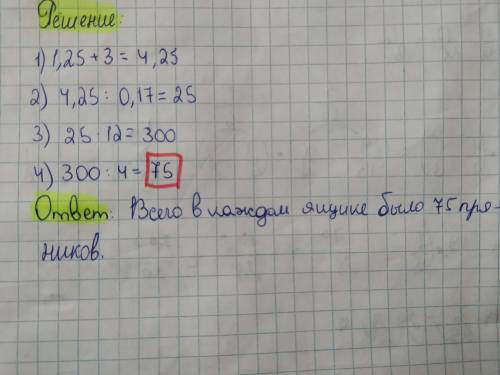 Решение:
1) 1,25 + 3 = 4,25
2) 4,25 : 0,17 = 25
3) 25 · 12 = 300
4) 300 : 4 = 75
Ответ: Всего в каждом ящике было 75 пря-
ников.